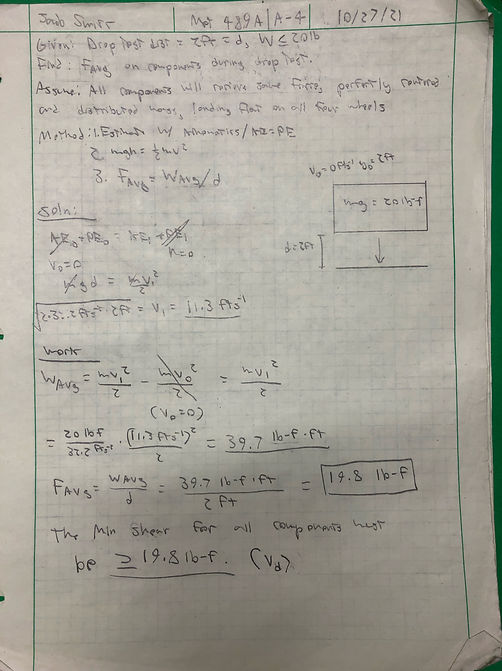 Met 489A A-4 10/27/21
Given: Drop test dist = 2ft = d, W ≤ 20lb
Find: FAvg on components during drop test.
Assume: All components will receive same force, perfectly
and distributed, landing flat on all four wheels
Method: 1. Estimate w/ kinematics / KE=PE
2. mgh = ½mv²
3. FAvg = WAvg/d
V₀=0fts⁻¹ y₀=2ft
mg = 20lb-f
d=2ft
Soln:
KE₀+PE₀ = KE₁+PE₁
V₀=0 h=0
mgd = mv₁²/2
√2·32.2fts⁻²·2ft = V₁ = 11.3 fts⁻¹
Work
WAvg = mv₁²/2 - mv₀²/2 = mv₁²/2
(V₀=0)
= 20lbf/32.2fts⁻² · (11.3fts⁻¹)²/2 = 39.7 lb-f·ft
FAvg = WAvg/d = 39.7 lb-f·ft/2ft = 19.8 lb-f
The Min shear for all components must
be ≥ 19.8 lb-f. (Vd)